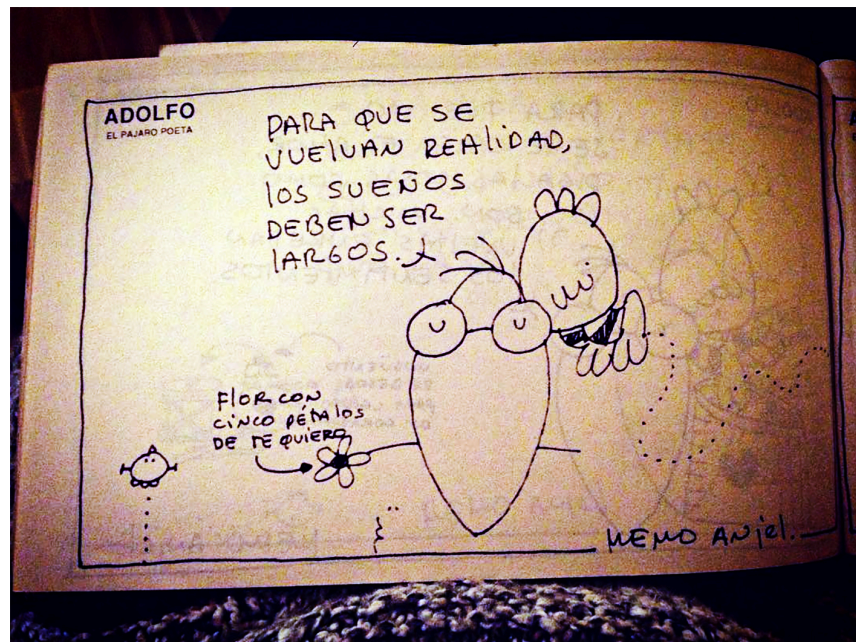 ADOLFO
EL PAJARO POETA
PARA QUE SE
VUELVAN REALIDAD,
LOS SUEÑOS
DEBEN SER
LARGOS.
FLOR CON
CINCO PÉTALOS
DE TE QUIERO
MEMO ANJEL.